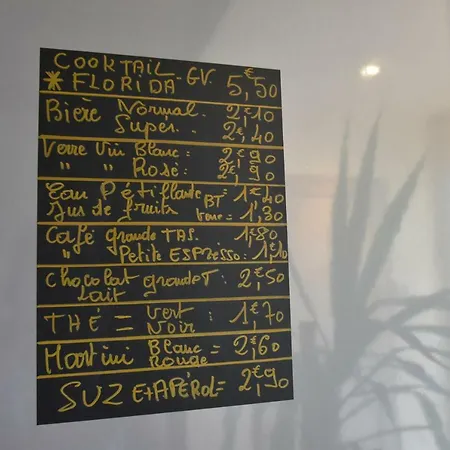 COOKTAIL
* FLORIDA - GV. 5,50
Bière Normal. 2,€10
Supér.. 2,€40
Verre Vin Blanc : 2,€90
" " Rosé : 2,€90
Eau Pétillante BT = 1,€40
Jus de fruits verre = 1,30
Café grande TAS. 1,€80
" Petite ESPRESSO : 1,€10
Chocolat grande T : 2,€50
lait
THÉ = Vert : 1,€70
Noir
Martini Blanc = 2,€60
Rouge
SUZ Et APÉROL = 2,€90